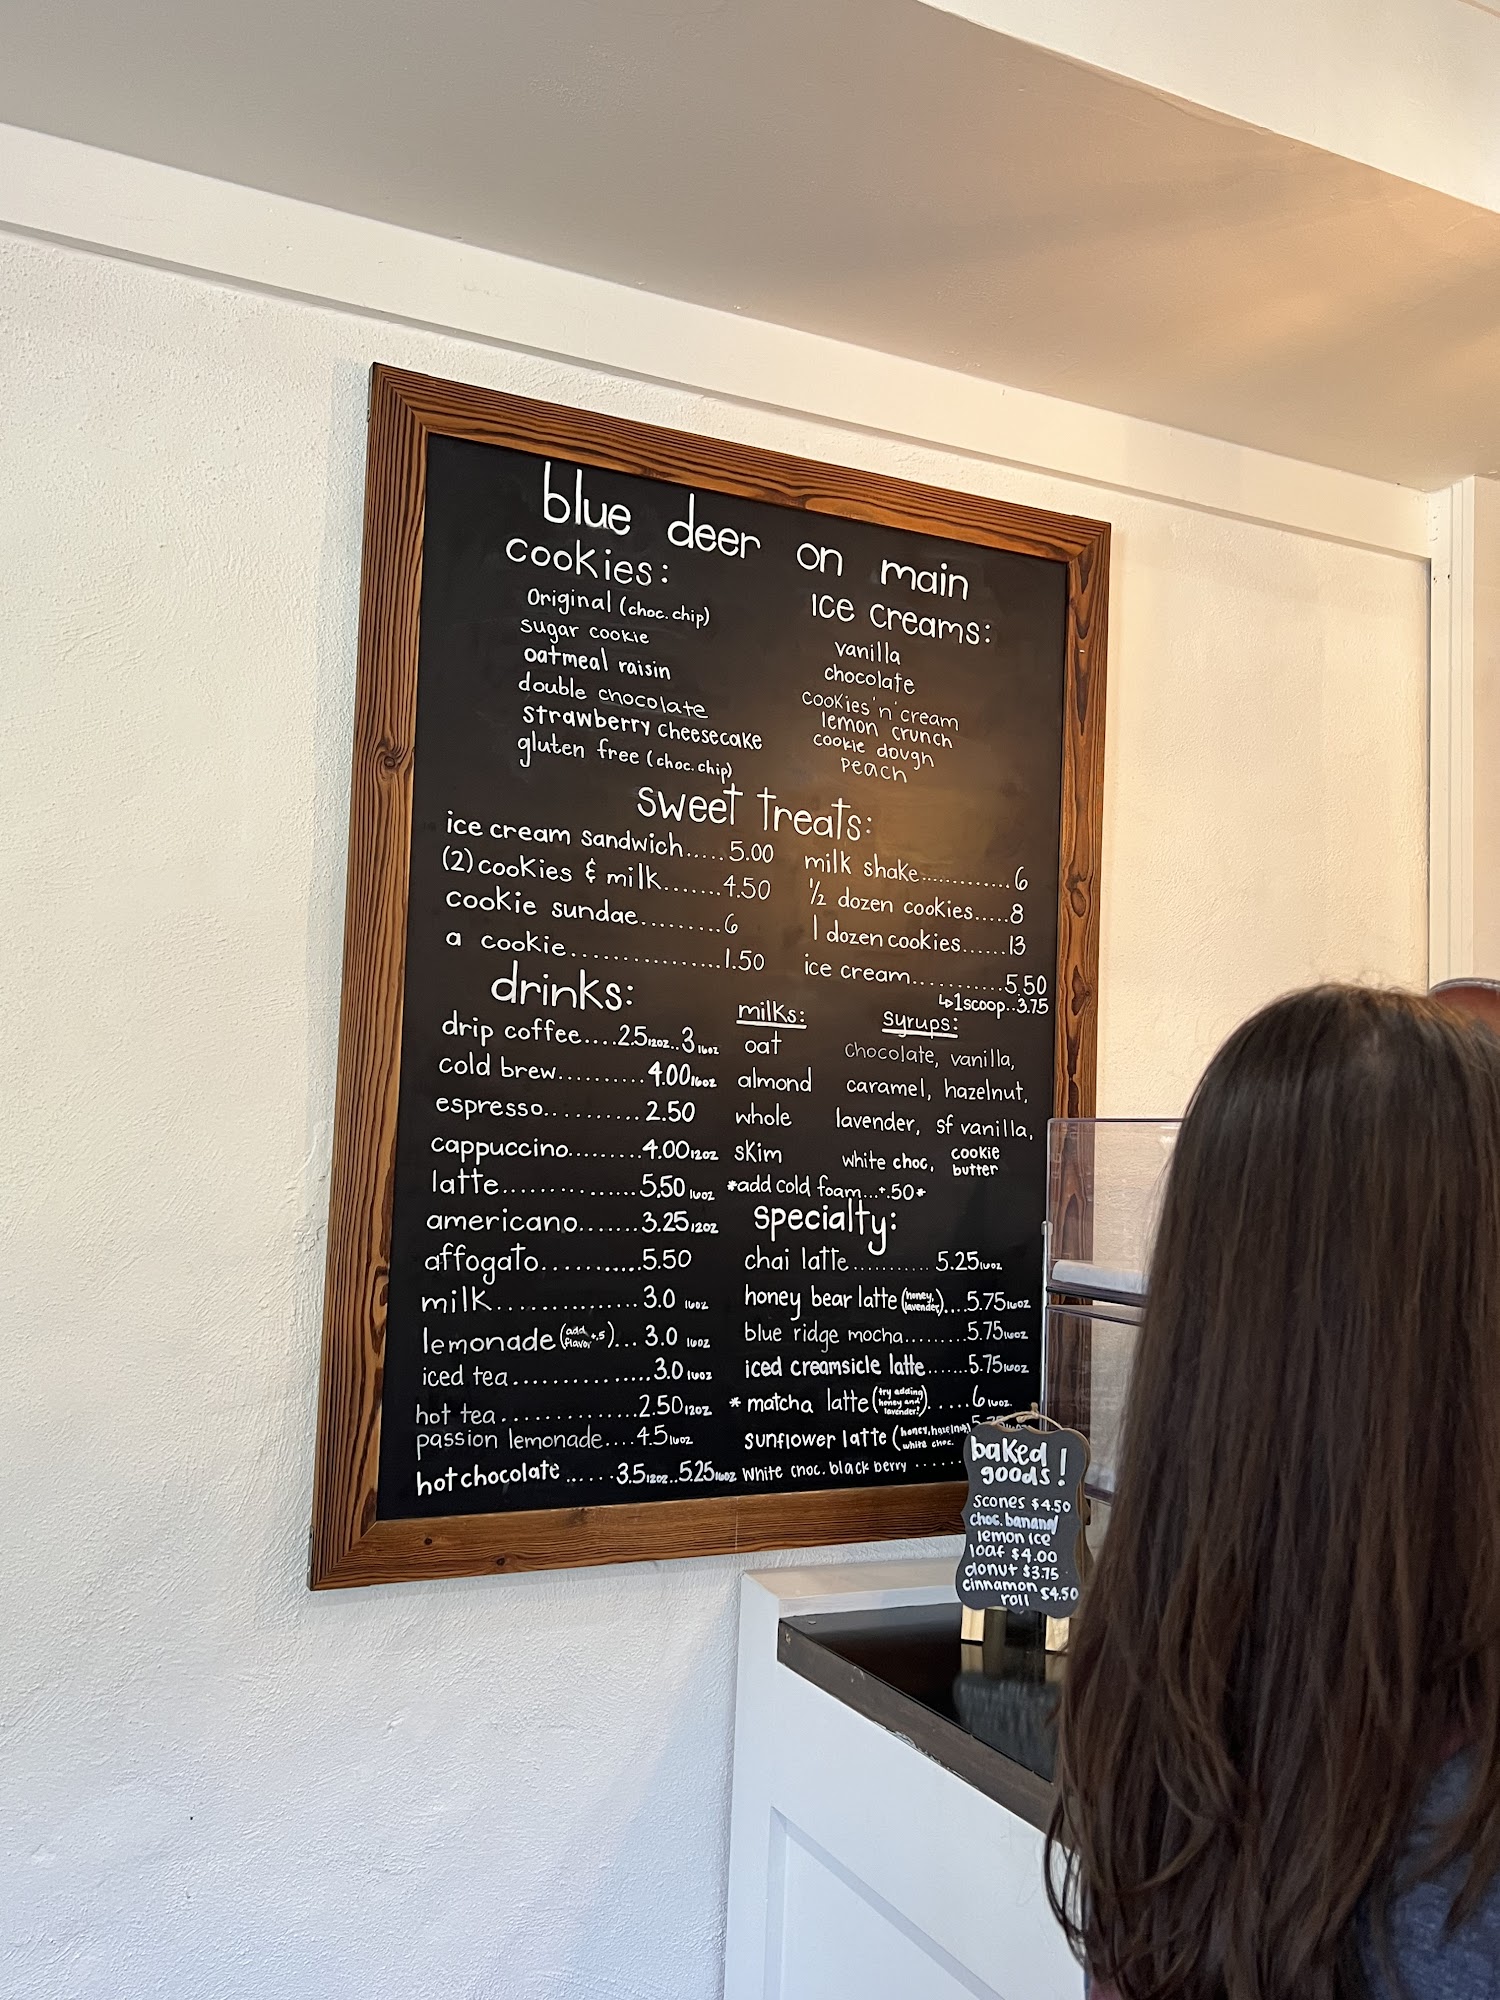 blue deer on main
cookies:
Original (choc. chip)
sugar cookie
oatmeal raisin
double chocolate
strawberry cheesecake
gluten free (choc. chip)
Ice creams:
vanilla
chocolate
cookies 'n' cream
lemon crunch
cookie dough
peach
sweet treats:
ice cream sandwich.....5.00
(2) cookies & milk.......4.50
cookie sundae.........6
a cookie................1.50
milk shake.............6
1/2 dozen cookies.....8
1 dozen cookies......13
ice cream...........5.50
↳1scoop..3.75
drinks:
drip coffee....2.5 12oz..3 16oz
cold brew..........4.00 16oz
espresso..........2.50
cappuccino.........4.00 12oz
latte...............5.50 16oz
americano.......3.25 12oz
affogato...........5.50
milk...............3.0 16oz
lemonade (add flavor +.5)... 3.0 16oz
iced tea...............3.0 16oz
hot tea...............2.50 12oz
passion lemonade....4.5 16oz
hot chocolate......3.5 12oz..5.25 16oz
milks:
oat
almond
whole
skim
syrups:
chocolate, vanilla,
caramel, hazelnut,
lavender, sf vanilla,
white choc, cookie butter
*add cold foam...+.50*
specialty:
chai latte........... 5.25 16oz
honey bear latte (honey, lavender)....5.75 16oz
blue ridge mocha.........5.75 16oz
iced creamsicle latte.......5.75 16oz
* matcha latte (try adding honey and lavender!).....6 16oz
sunflower latte (honey, hazelnut, white choc.
white choc. blackberry ......
baked
goods!
scones $4.50
choc. banana/
lemon ice
loaf $4.00
donut $3.75
cinnamon $4.50
roll